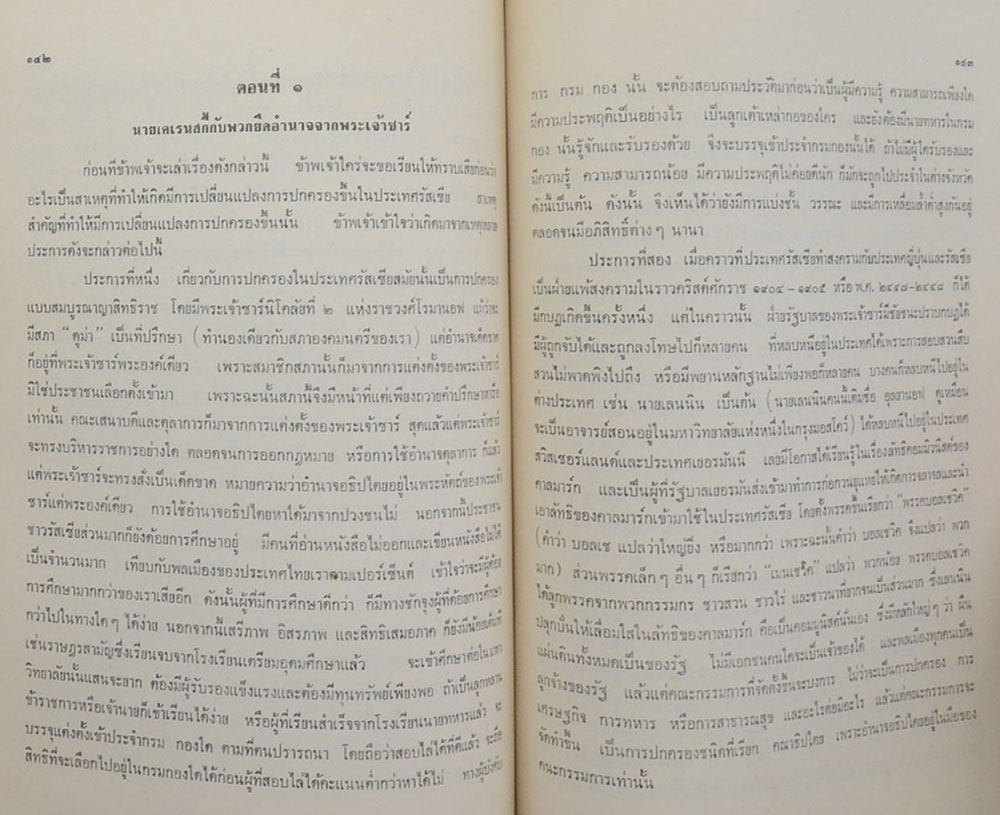 ๑๔๒
ตอนที่ ๑
นายเคเรนสกี้กับพวกยึดอำนาจจากพระเจ้าซาร์
ก่อนที่ข้าพเจ้าจะเล่าเรื่องดังกล่าวนี้ ข้าพเจ้าใคร่จะขอเรียนให้ทราบเสียก่อนว่า
อะไรเป็นสาเหตุที่ทำให้เกิดมีการเปลี่ยนแปลงการปกครองขึ้นในประเทศรัสเซีย สาเหตุ
สำคัญที่ทำให้มีการเปลี่ยนแปลงการปกครองขึ้นนั้น ข้าพเจ้าเข้าใจว่าเกิดมาจากเหตุหลาย
ประการดังจะกล่าวต่อไปนี้
ประการที่หนึ่ง เกี่ยวกับการปกครองในประเทศรัสเซียสมัยนั้นเป็นการปกครอง
แบบสมบูรณาญาสิทธิราช โดยมีพระเจ้าซาร์นิโคลัยที่ ๒ แห่งราชวงศ์โรมานอฟ แม้ว่าจะ
มีสภา “ดูม่า” เป็นที่ปรึกษา (ทำนองเดียวกับสภาองคมนตรีของเรา) แต่อำนาจเด็ดขาด
ก็อยู่ที่พระเจ้าซาร์พระองค์เดียว เพราะสมาชิกสภานั้นก็มาจากการแต่งตั้งของพระเจ้าซาร์
มิใช่ประชาชนเลือกตั้งเข้ามา เพราะฉะนั้นสภานี้จึงมีหน้าที่แต่เพียงถวายคำปรึกษาหารือ
เท่านั้น คณะเสนาบดีและตุลาการก็มาจากการแต่งตั้งของพระเจ้าซาร์ สุดแล้วแต่พระเจ้าซาร์
จะทรงบริหารราชการอย่างใด ตลอดจนการออกกฎหมาย หรือการใช้อำนาจตุลาการ ก็แล้ว
แต่พระเจ้าซาร์จะทรงสั่งเป็นเด็ดขาด หมายความว่าอำนาจอธิปไตยอยู่ในพระหัตถ์ของพระเจ้า
ซาร์แต่พระองค์เดียว การใช้อำนาจอธิปไตยหาได้มาจากปวงชนไม่ นอกจากนี้ประชาชน
ชาวรัสเซียส่วนมากก็ยังด้อยการศึกษาอยู่ มีคนที่อ่านหนังสือไม่ออกและเขียนหนังสือไม่ได้
เป็นจำนวนมาก เทียบกับพลเมืองของประเทศไทยเราตามเปอร์เซ็นต์ เข้าใจว่าจะมีผู้ด้อย
การศึกษามากกว่าของเราเสียอีก ดังนั้นผู้ที่มีการศึกษาดีกว่า ก็มีทางชักจูงผู้ที่ด้อยการศึกษา
กว่าไปในทางใดๆ ได้ง่าย นอกจากนี้เสรีภาพ อิสรภาพ และสิทธิเสมอภาค ก็ยังมีน้อยเต็มที
เช่นราษฎรสามัญซึ่งเรียนจบจากโรงเรียนเตรียมอุดมศึกษาแล้ว จะเข้าศึกษาต่อในมหา
วิทยาลัยนั้นแสนจะยาก ต้องมีผู้รับรองแข็งแรงและต้องมีทุนทรัพย์เพียงพอ ถ้าเป็นลูกหลาน
ข้าราชการหรือเจ้านายก็เข้าเรียนได้ง่าย หรือผู้ที่เรียนสำเร็จจากโรงเรียนนายทหารแล้ว จะ
บรรจุแต่งตั้งเข้าประจำกรม กองใด ตามที่ตนปรารถนา โดยถือว่าสอบไล่ได้ที่ดีแล้ว จะถือ
สิทธิที่จะเลือกไปอยู่ในกรมกองใดได้ก่อนผู้ที่สอบไล่ได้คะแนนต่ำกว่าหาได้ไม่ ทางผู้บังคับ
๑๔๓
การ กรม กอง นั้น จะต้องสอบถามประวัติมาก่อนว่าเป็นผู้มีความรู้ ความสามารถเพียงใด
มีความประพฤติเป็นอย่างไร เป็นลูกเต้าเหล่ากอของใคร และยังต้องมีนายทหารในกรม
กอง นั้นรู้จักและรับรองด้วย จึงจะบรรจุเข้าประจำกรมกองนั้นได้ ถ้าไม่มีผู้ใดรับรองและ
มีความรู้ ความสามารถน้อย มีความประพฤติไม่ค่อยดีนัก ก็มักจะถูกไปประจำในต่างจังหวัด
ดังนี้เป็นต้น ดังนั้น จึงเห็นได้ว่ายังมีการแบ่งชั้น วรรณะ และมีการเหลื่อมล้ำต่ำสูงกันอยู่
ตลอดจนมีอภิสิทธิ์ต่างๆ นานา
ประการที่สอง เมื่อคราวที่ประเทศรัสเซียทำสงครามกับประเทศญี่ปุ่นและรัสเซีย
เป็นฝ่ายแพ้สงครามในราวคริสต์ศักราช ๑๙๐๔–๑๙๐๕ หรือ พ.ศ. ๒๔๔๗–๒๔๔๘ ก็ได้
มีกบฎเกิดขึ้นครั้งหนึ่ง แต่ในคราวนั้น ฝ่ายรัฐบาลของพระเจ้าซาร์มีชัยชนะปราบกบฎได้
มีผู้ถูกจับได้และถูกลงโทษไปก็หลายคน ที่หลบหนีอยู่ในประเทศได้เพราะการสอบสวนสืบ
สวนไม่พาดพิงไปถึง หรือมีพยานหลักฐานไม่เพียงพอก็หลายคน บางคนก็หลบหนีไปอยู่ใน
ต่างประเทศ เช่น นายเลนนิน เป็นต้น (นายเลนนินคนนี้เดิมชื่อ อุลยานอฟ ดูเหมือน
จะเป็นอาจารย์สอนอยู่ในมหาวิทยาลัยแห่งหนึ่งในกรุงมอสโคว์) ได้หลบหนีไปอยู่ในประเทศ
สวิสเซอร์แลนด์และประเทศเยอรมันนี เลยมีโอกาสได้เรียนรู้ในเรื่องลัทธิคอมมิวนิสต์ของ
คาลมาร์ก และเป็นผู้ที่รัฐบาลเยอรมันส่งเข้ามาทำการก่อกวนยุแหย่ให้เกิดการจลาจลและนำ
เอาลัทธิของคาลมาร์กเข้ามาใช้ในประเทศรัสเซีย โดยตั้งพรรคขึ้นเรียกว่า “พรรคบอลเชวิค”
(คำว่า บอลเช แปลว่าใหญ่ยิ่ง หรือมากกว่า เพราะฉะนั้นคำว่า บอลเชวิค จึงแปลว่า พวก
มาก) ส่วนพรรคเล็กๆ อื่นๆ ก็เรียกว่า “เมนเชวิค” แปลว่า พวกน้อย พรรคบอลเชวิค
ได้ลูกพรรคจากพวกกรรมกร ชาวสวน ชาวไร่ และชาวนาที่ยากจนเป็นส่วนมาก ซึ่งเลนนิน
ปลุกปั่นให้เลื่อมใสในลัทธิของคาลมาร์ก คือเป็นคอมมูนิสต์นั่นเอง ซึ่งมีหลักใหญ่ๆ ว่า ผืน
แผ่นดินทั้งหมดเป็นของรัฐ ไม่มีเอกชนคนใดจะเป็นเจ้าของได้ และพลเมืองทุกคนเป็น
ลูกจ้างของรัฐ แล้วแต่คณะกรรมการที่จัดตั้งขึ้นจะบงการ ไม่ว่าจะเป็นการปกครอง การ
เศรษฐกิจ การทหาร หรือการสาธารณสุข และอะไรต่อมิอะไร แล้วแต่คณะกรรมการจะ
จัดทำขึ้น เป็นการปกครองชนิดที่เรียก คณาธิปไตย เพราะอำนาจอธิปไตยอยู่ในมือของ
คณะกรรมการเท่านั้น